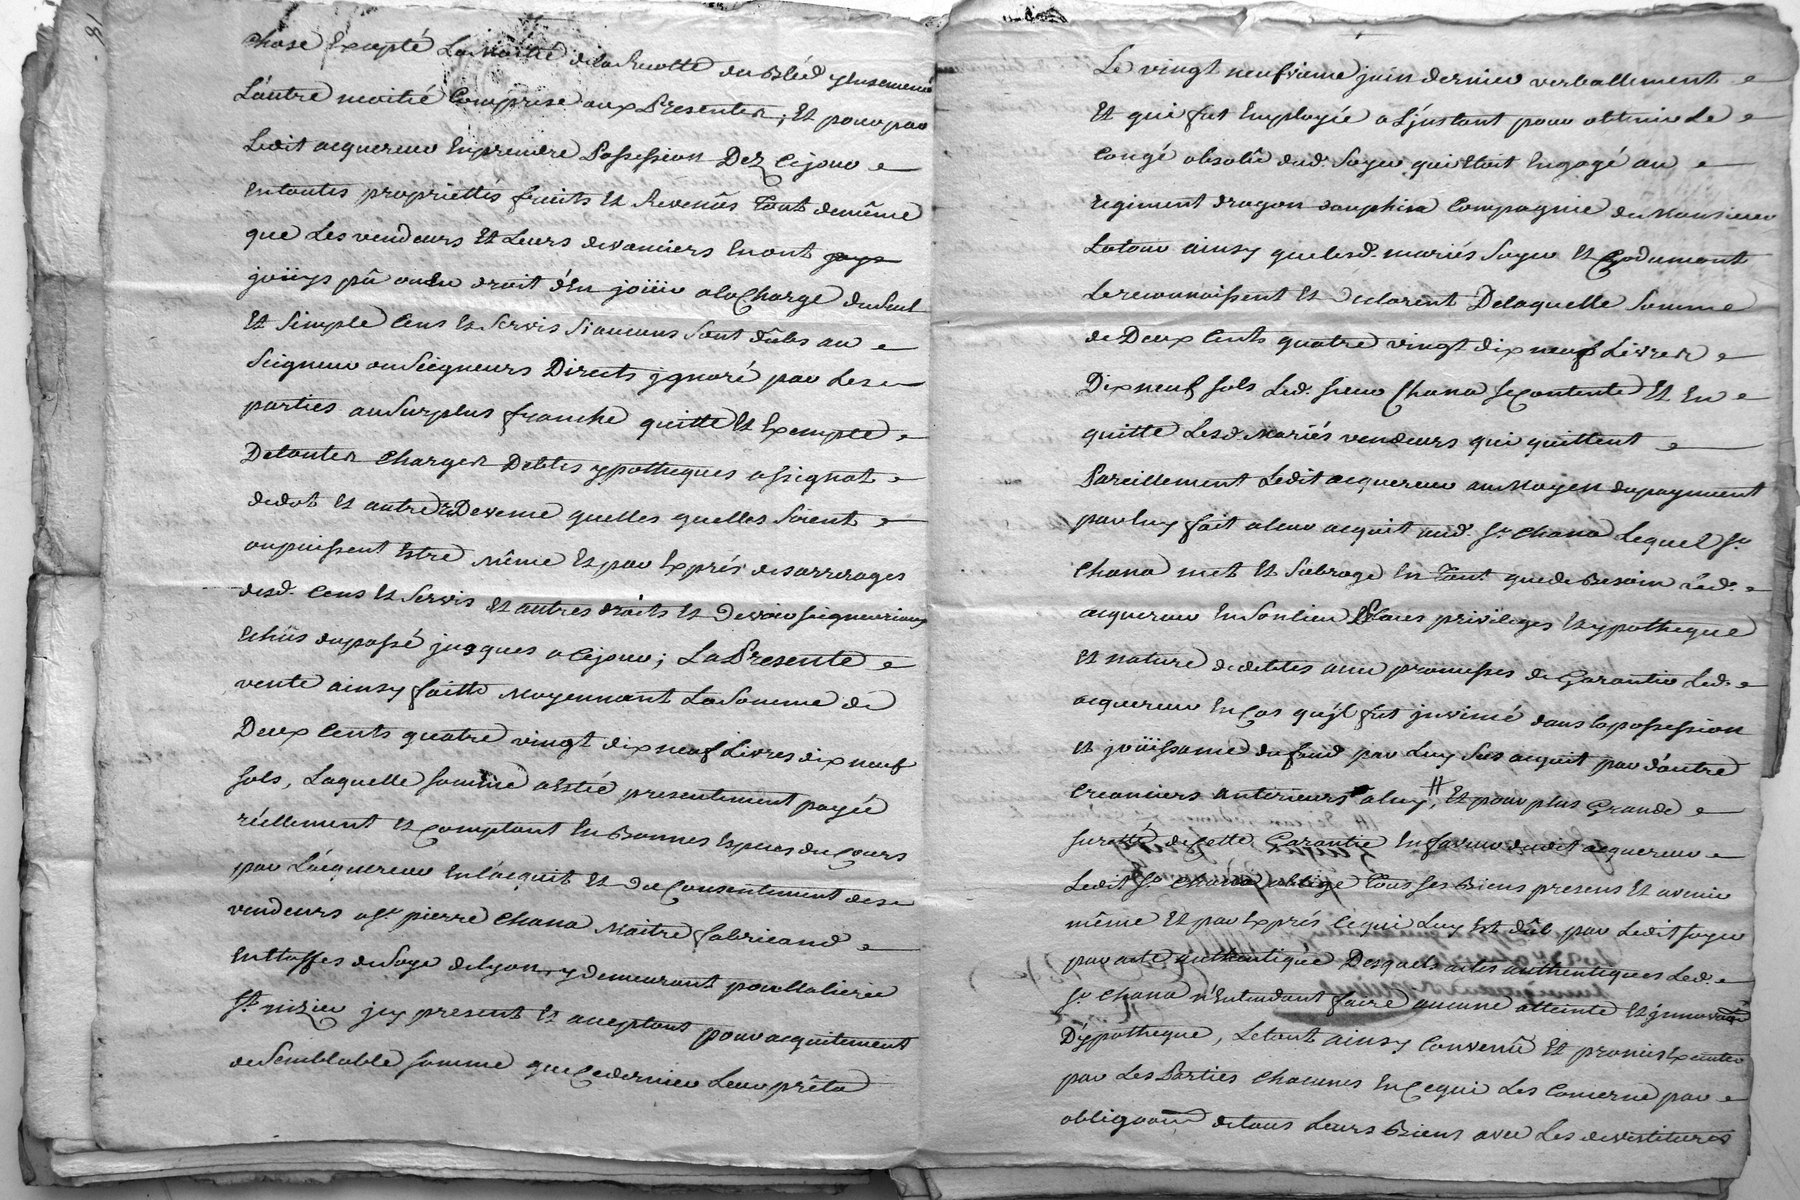 chose Excepté La Moitié de la Recolte du Bled
L'autre moitié Comprise aux Presentes, Et pour par
Ledit acquereur En prendre Possession Dez Cejour
En toutes propriettés fruits Et Revenûs Tout demême
que Les vendeurs Et Leurs devanciers En ont
joüys pû ou dû droit d'En joüir ala Charge du Seul
Et Simple Cens Et Servis Si aucuns Sont dûbs au
Seigneur ou Seigneurs Directs jgnoré par Les
parties au Surplus franche quitte Et Exempte
De toutes Charges Debtes ypotheques assignat
de dot Et autres Devenne quelles quelles Soient
ou puissent Estre même Et par Exprés des arrerages
desd. Cens Et Servis Et autres droits Et Devoirs Seigneuriaux
Echüs du passé jusques a Cejour; La Presente
vente ainsy faitte Moyennant La Somme de
Deux Cents quatre vingt dix neuf Livres dix neuf
sols, Laquelle somme a Esté presentement payée
réellement Et Comptant En Bonnes Especes du Cours
par L'acquereur En L'acquit Et du Consentement des
vendeurs a Sr. pierre Chana Maitre fabricand
En Etoffes de Soye de Lyon y demeurant
St. nizier jcy present Et acceptant pour acquitement
de Semblable somme que Ce dernier Leur prêta
Le vingt neufvieme juin dernier verballement
Et qui fut Employée a L'jnstant pour obtenir Le
Congé absolû dud. Soyer qui Etoit Engagé au
regiment dragon dauphin Compagnie de Monsieur
Latour ainsy que lesd. mariés Soyer Et
Le reconnoissent Et declarent De laquelle Somme
de Deux Cents quatre vingt dix neuf Livres
Dix neuf sols Led. sieur Chana se Contente Et En
quitte Lesd. Mariés vendeurs qui quittent
Pareillement Ledit acquereur au Moyen du payement
par luy fait a leur acquit aud. Sr. Chana Lequel Sr.
Chana met Et Subroge En Tant que de Besoin Led.
acquereur En Son Lieu Place privileges Et ypotheque
Et nature de debtes avec promesses de Garantir Led.
acquereur En Cas qu'jl fut jnquieté dans la possession
Et joüissance du fond par Luy Sus acquit par d'autre
Creanciers anterieurs a luy, # Et pour plus Grande
suretté de Cette Garantie En faveur dudit acquereur
Ledit Sr. Chana oblige Tous Ses Biens presens Et avenir
même Et par Exprés Ce qui Luy Est dûb par Ledit Soyer
par acte authentique Desquels actes authentiques Led.
Sr. Chana n'Entendant faire aucune atteinte Et jnnovaôn
D'ypotheque, Letout ainsy Convenû Et promis Executer
par Les Parties Chacunes En Ce qui Les Concerne par
obligâôn de tous Leurs Biens avec Les devestitures